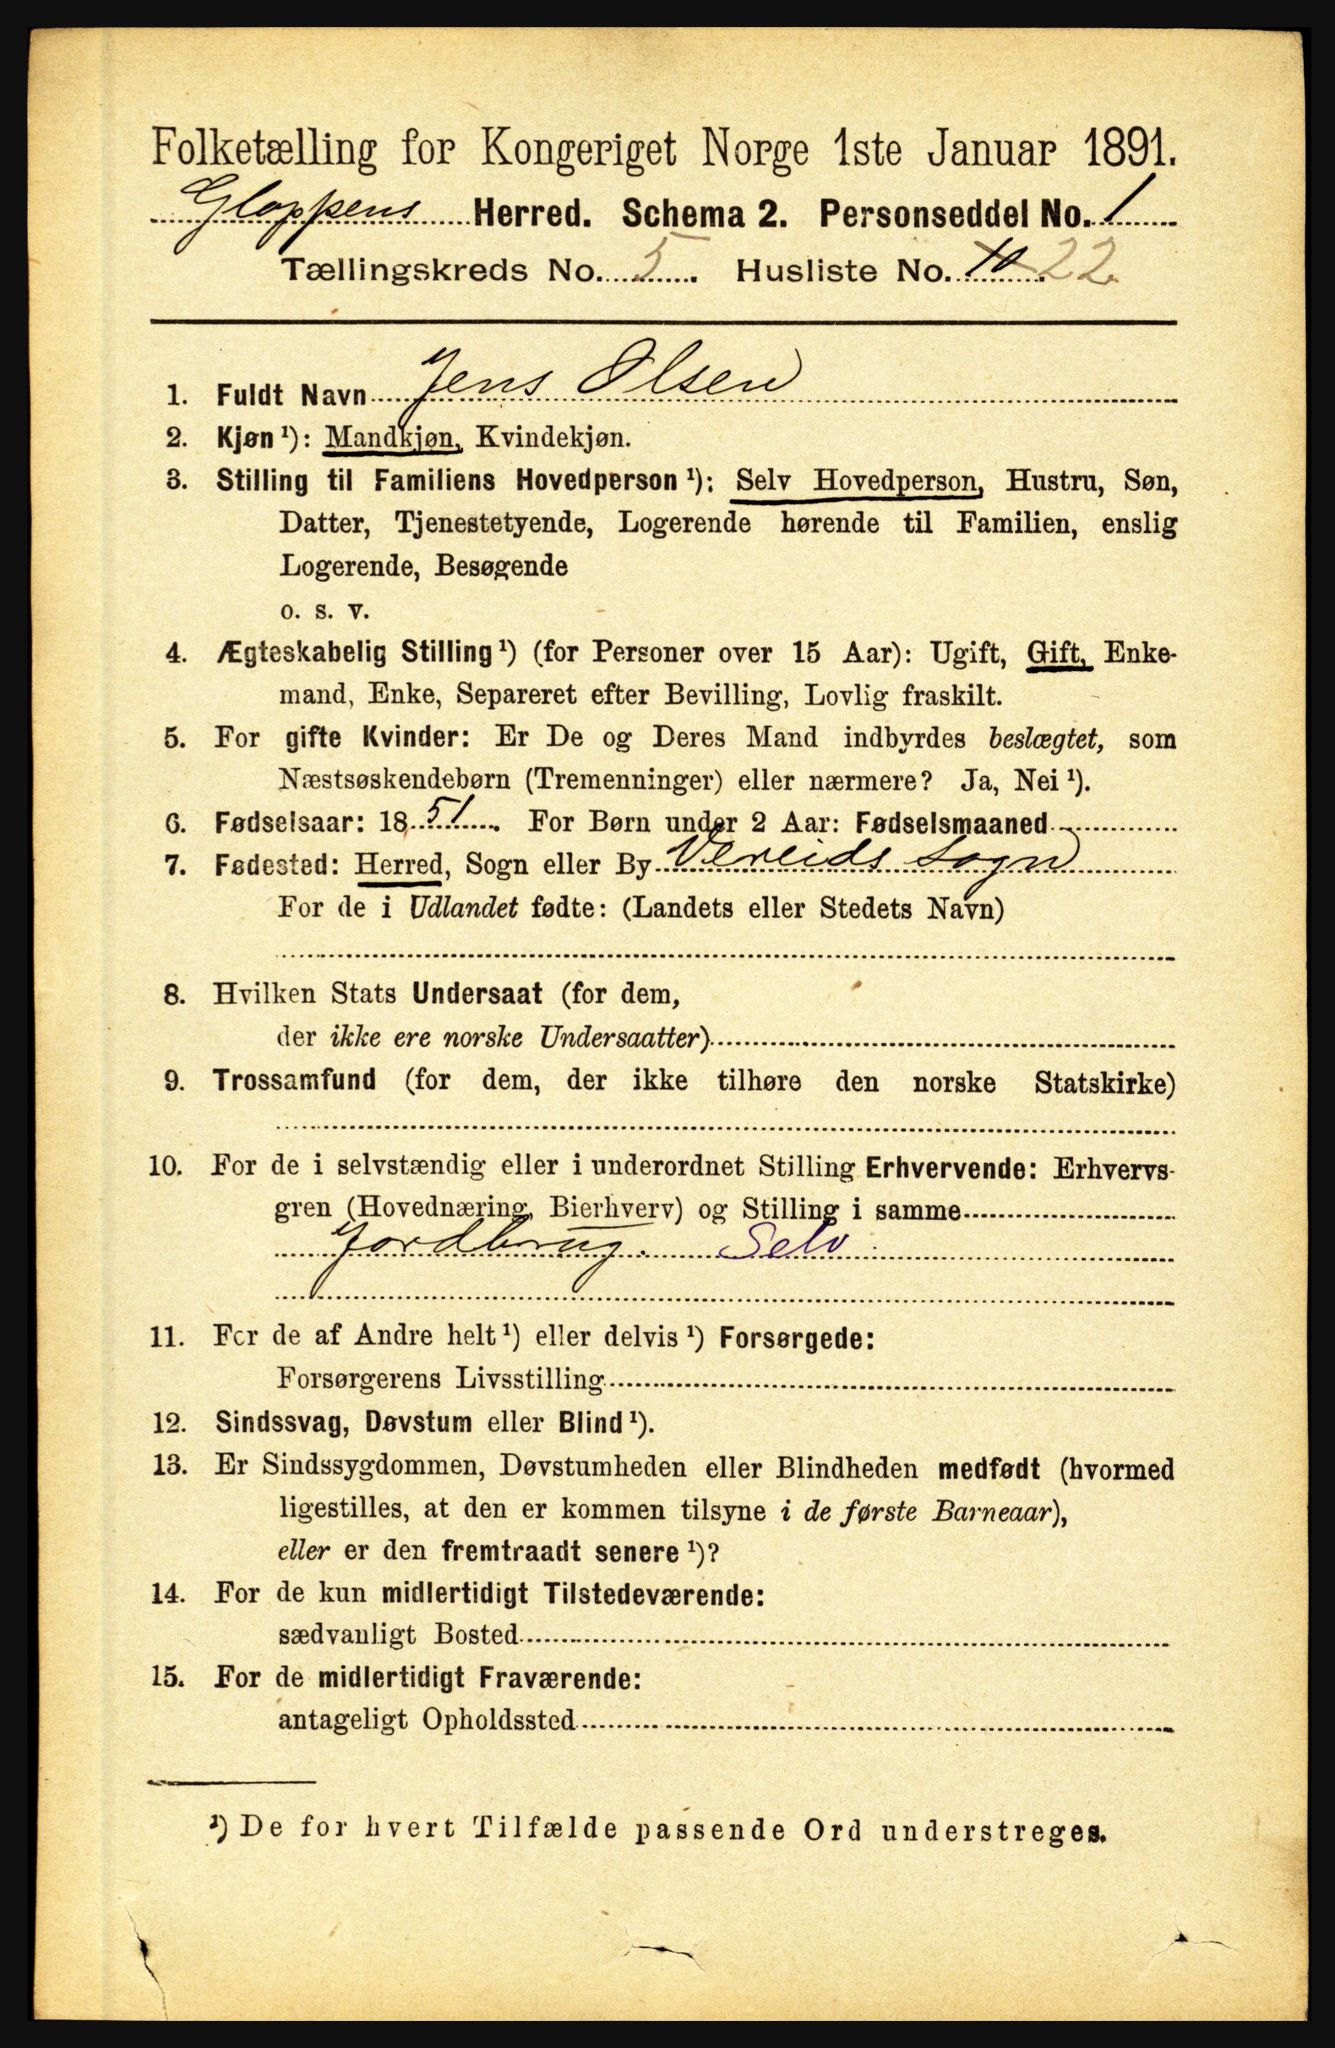 Folketælling for Kongeriget Norge 1ste Januar 1891.
Gloppens Herred. Schema 2. Personseddel No. 1
Tællingskreds No. 5. Husliste No. 10 22
1. Fuldt Navn Jens Olsen
2. Kjøn ¹): Mandkjøn, Kvindekjøn.
3. Stilling til Familiens Hovedperson ¹): Selv Hovedperson, Hustru, Søn,
Datter, Tjenestetyende, Logerende hørende til Familien, enslig
Logerende, Besøgende
o. s. v.
4. Ægteskabelig Stilling ¹) (for Personer over 15 Aar): Ugift, Gift, Enke-
mand, Enke, Separeret efter Bevilling, Lovlig fraskilt.
5. For gifte Kvinder: Er De og Deres Mand indbyrdes beslægtet, som
Næstsøskendebørn (Tremenninger) eller nærmere? Ja, Nei ¹).
6. Fødselsaar: 1851. For Børn under 2 Aar: Fødselsmaaned
7. Fødested: Herred, Sogn eller By Vereids sogn
For de i Udlandet fødte: (Landets eller Stedets Navn)
8. Hvilken Stats Undersaat (for dem,
der ikke ere norske Undersaatter)
9. Trossamfund (for dem, der ikke tilhøre den norske Statskirke)
10. For de i selvstændig eller i underordnet Stilling Erhvervende: Erhvervs-
gren (Hovednæring, Bierhverv) og Stilling i samme
Jordbrug. Selv
11. For de af Andre helt ¹) eller delvis ¹) Forsørgede:
Forsørgerens Livsstilling
12. Sindssvag, Døvstum eller Blind ¹).
13. Er Sindssygdommen, Døvstumheden eller Blindheden medfødt (hvormed
ligestilles, at den er kommen tilsyne i de første Barneaar),
eller er den fremtraadt senere ¹)?
14. For de kun midlertidigt Tilstedeværende:
sædvanligt Bosted
15. For de midlertidigt Fraværende:
antageligt Opholdssted
¹) De for hvert Tilfælde passende Ord understreges.